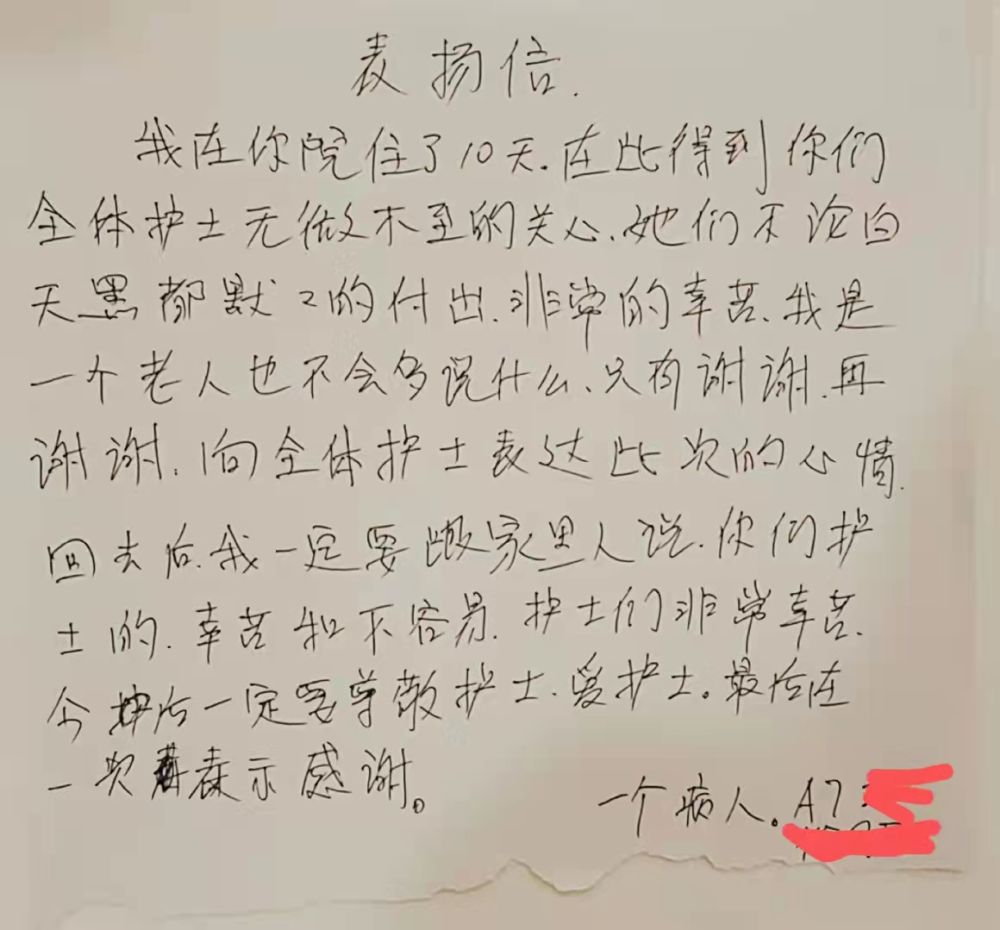 表扬信.
我在你院住了10天.在此得到你们
全体护士无微不至的关心.她们不论白
天黑都默々的付出.非常的辛苦.我是
一个老人也不会多说什么、只有谢谢.再
谢谢.向全体护士表达此次的心情.
回去后.我一定要跟家里人说.你们护
士的.辛苦和不容易.护士们非常辛苦.
今后一定要尊敬护士.爱护士。最后在
一次表示感谢。
一个病人。A7